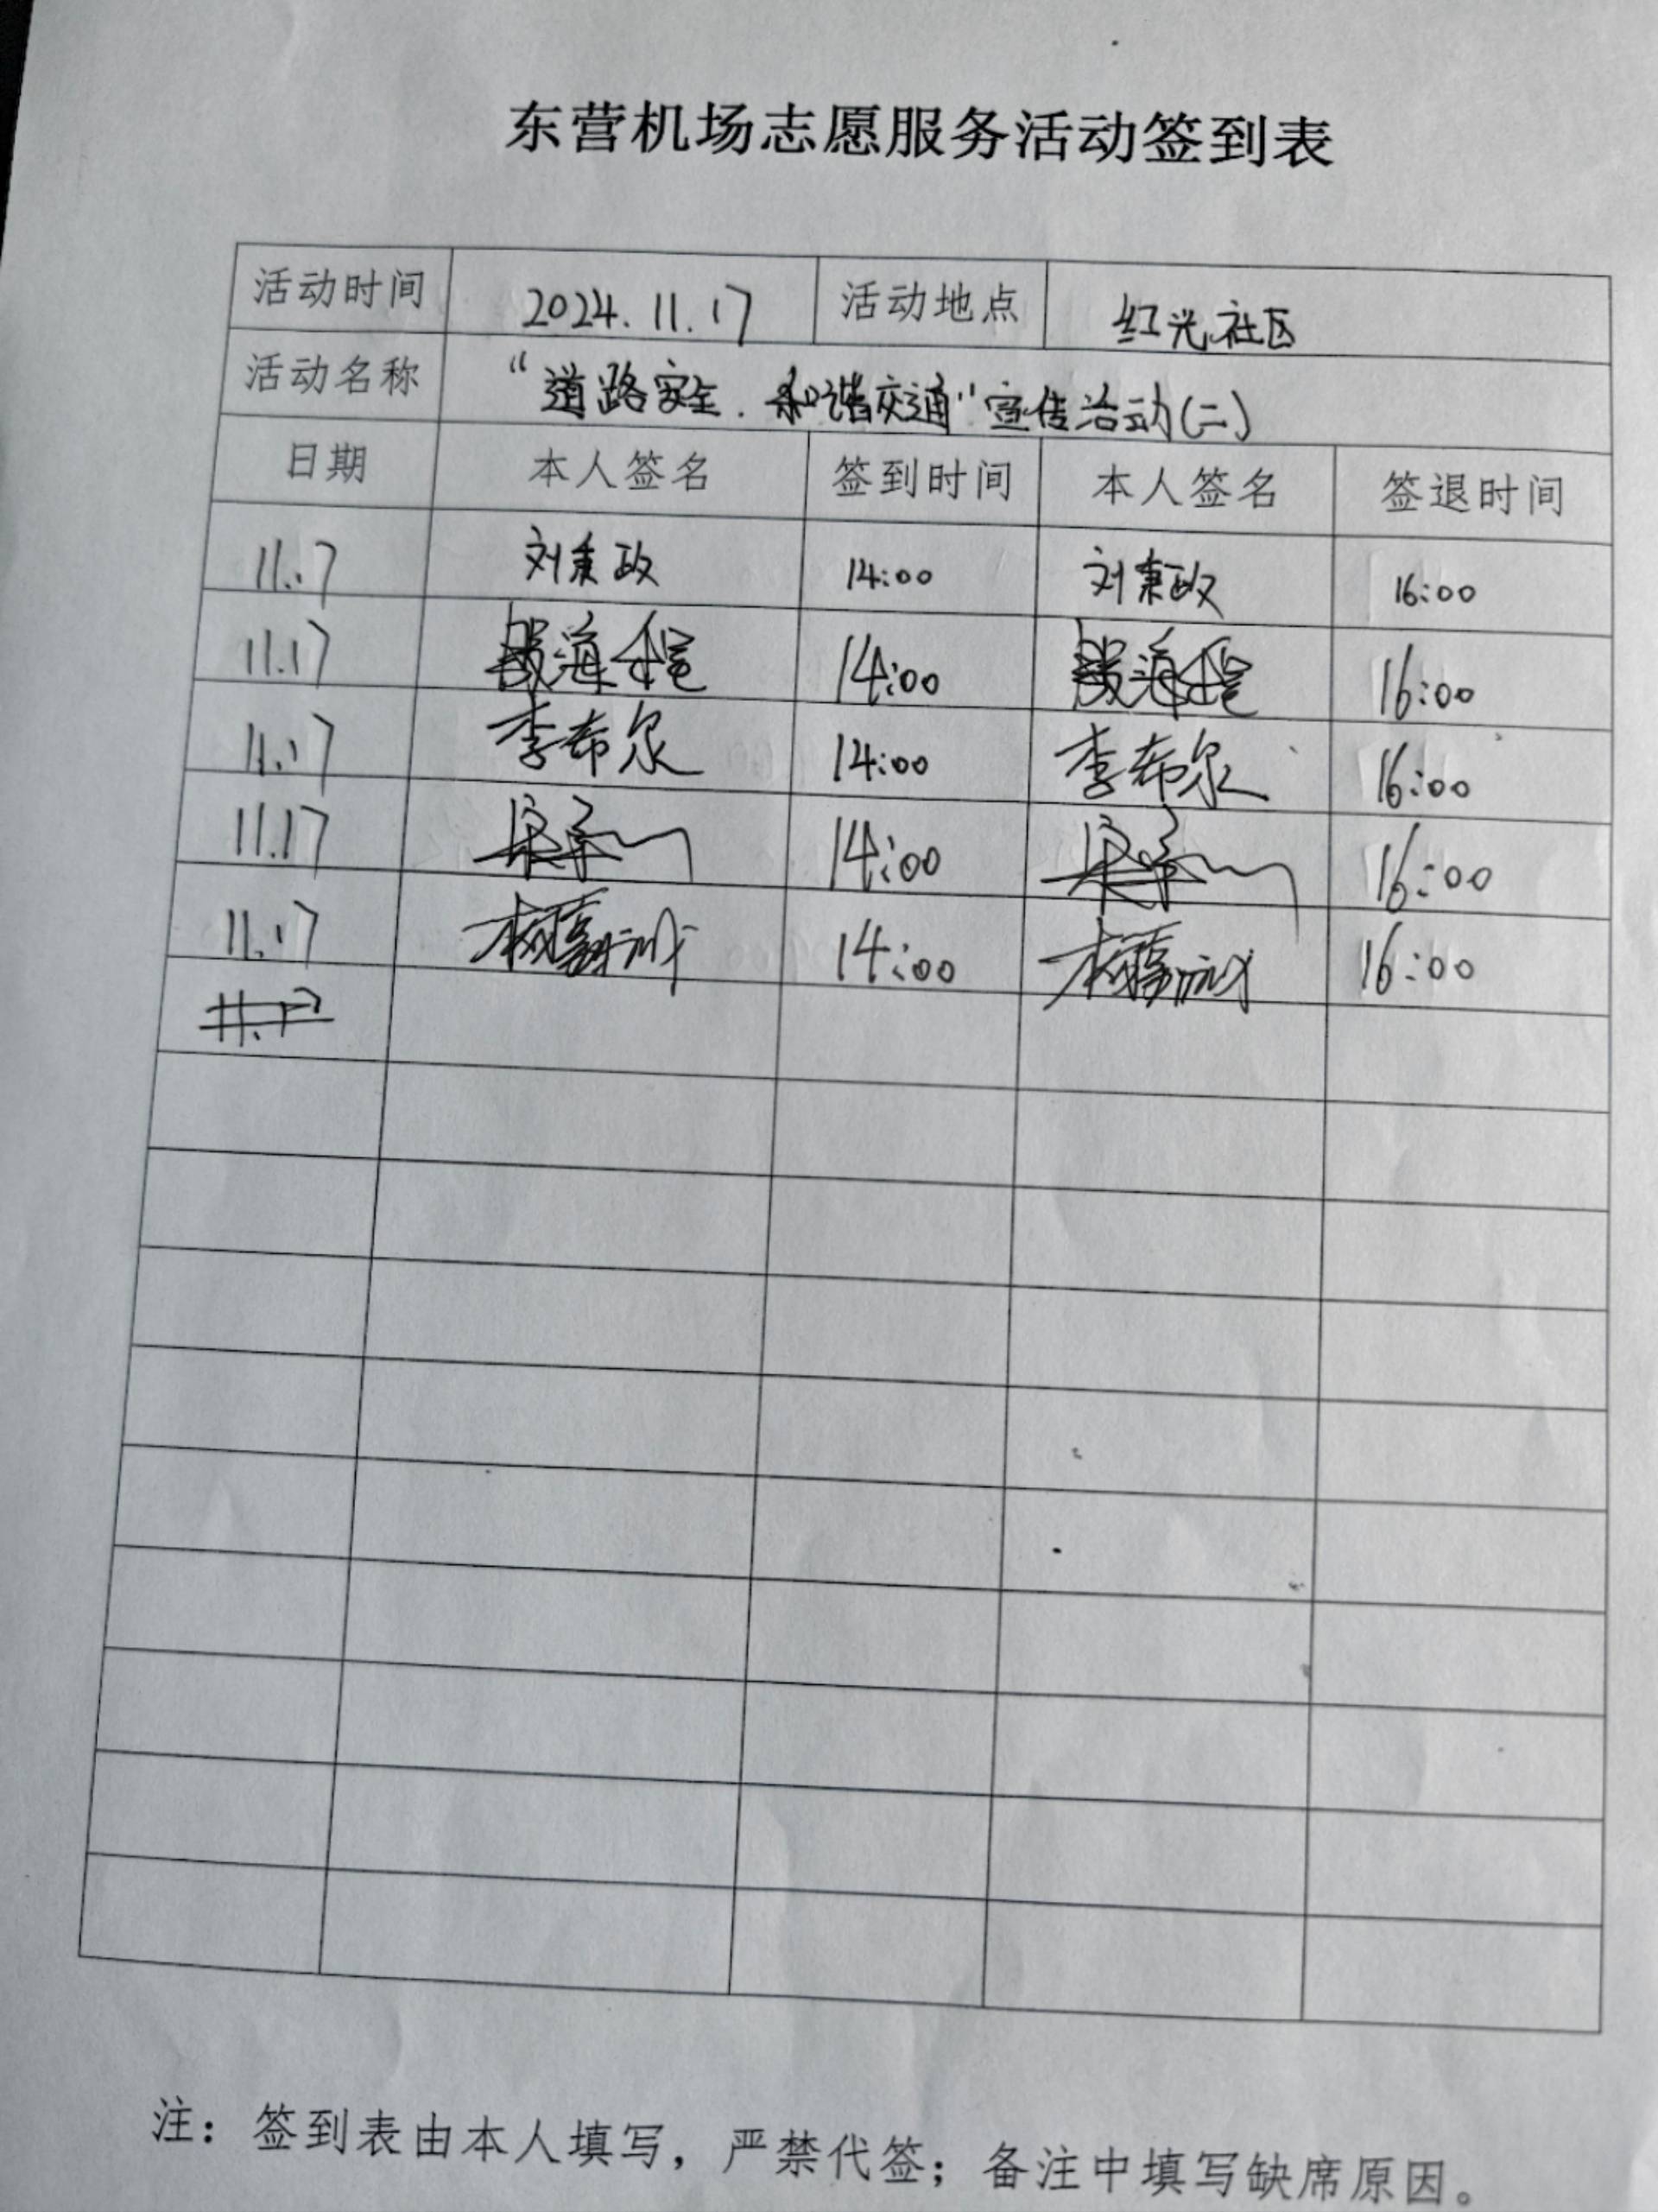 东营机场志愿服务活动签到表
活动时间 2024.11.17 活动地点 红光社区
活动名称 “道路安全.和谐交通”宣传活动(二)
日期 本人签名 签到时间 本人签名 签退时间
11.17 刘秉政 14:00 刘秉政 16:00
11.17 14:00 16:00
11.17 李希尔 14:00 李希尔 16:00
11.17 14:00 16:00
11.17 14:00 16:00
11.17
注：签到表由本人填写，严禁代签；备注中填写缺席原因。